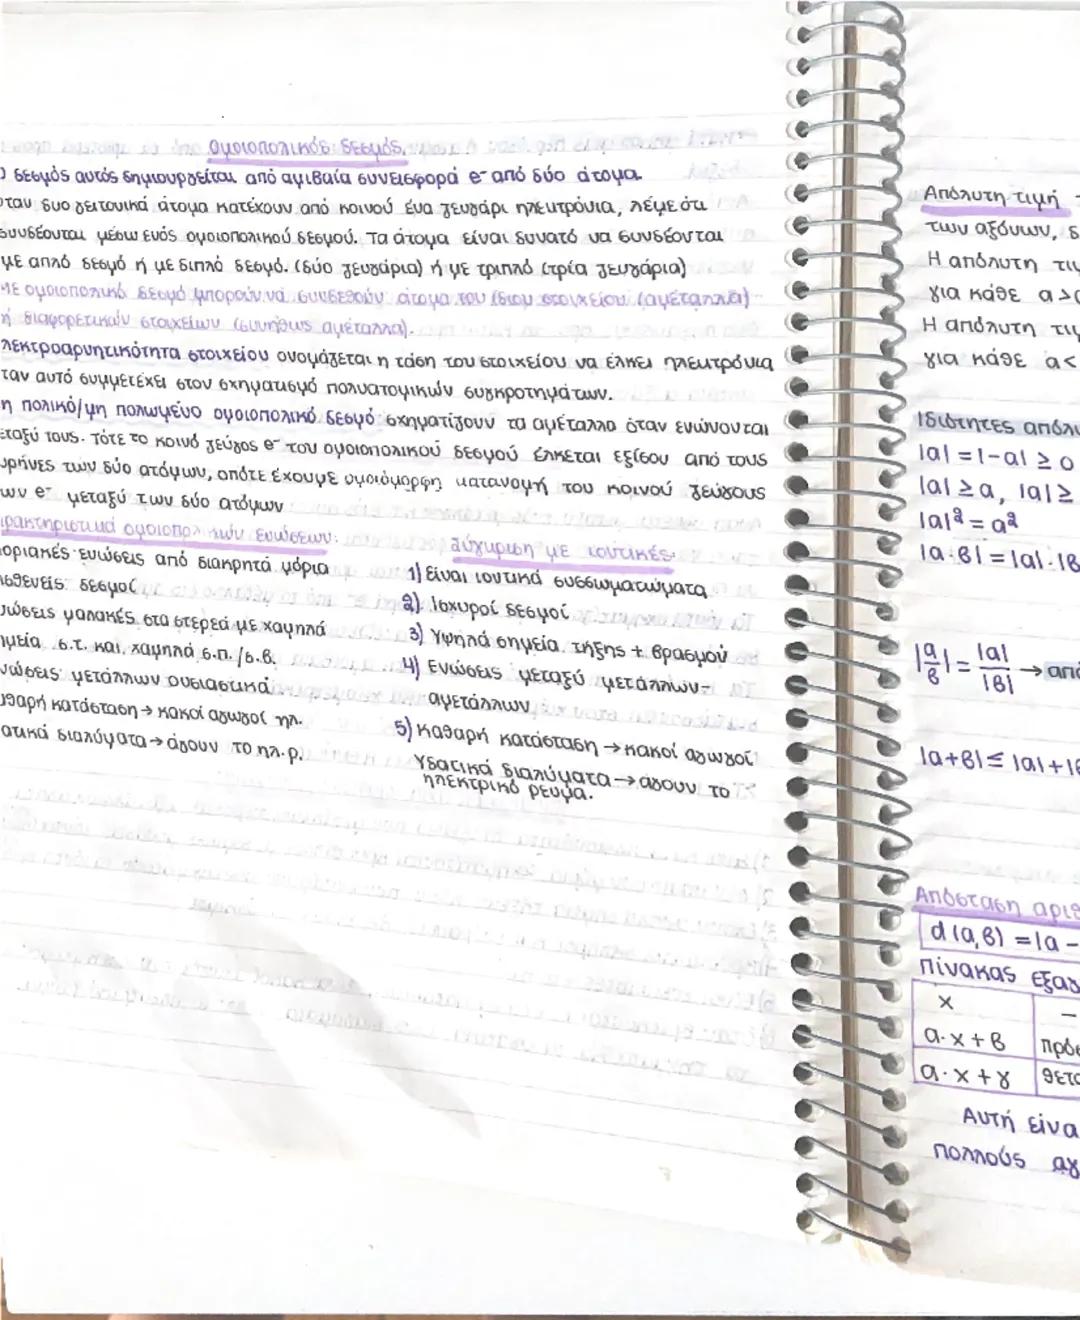 Ομοιοπολικός δεσμός.
δεσμός αυτός δημιουργείται από αμιβαία συνεισφορά e⁻ από δύο άτομα.
όταν δυο γειτονικά άτομα κατέχουν από κοινού ένα ζευγάρι ηλεκτρόνια, λέμε ότι
συνδέονται μέσω ενός ομοιοπολικού δεσμού. Τα άτομα είναι δυνατό να συνδέονται
με απλό δεσμό ή με διπλό δεσμό. (δύο ζευγάρια) ή με τριπλό (τρία ζευγάρια)
με ομοιοπολικό δεσμό μπορούν να συνδεθούν άτομα του ίδιου στοιχείου (αμέταλλα)
ή διαφορετικών στοιχείων (συνήθως αμέταλλα).
λεκτροαρνητικότητα στοιχείου ονομάζεται η τάση του στοιχείου να έλκει ηλεκτρόνια
ταν αυτό συμμετέχει στον σχηματισμό πολυατομικών συγκροτημάτων.
η πολικό/μη πολωμένο ομοιοπολικό δεσμό σχηματίζουν τα αμέταλλα όταν ενώνονται
εταξύ τους. Τότε το κοινό ζεύγος e⁻ του ομοιοπολικού δεσμού έλκεται εξίσου από τους
υρήνες των δύο ατόμων, οπότε έχουμε ομοιόμορφη κατανομή του κοινού ζεύγους
ων e⁻ μεταξύ των δύο ατόμων
αρακτηριστικά ομοιοπολικών ενώσεων:
οριακές ενώσεις από διακριτά μόρια
σθενείς δεσμοί
νώσεις μαλακές στα στερεά με χαμηλά
ημεία σ.τ. και χαμηλά σ.π./σ.β.
νώσεις μετάλλων ουσιαστικά
θαρή κατάσταση → κακοί αγωγοί ηλ.
ατικά διαλύματα → άγουν το ηλ. ρ.
Σύγκριση με ιοντικές:
1) Είναι ιοντικά συσσωματώματα
2) Ισχυροί δεσμοί
3) Υψηλά σημεία τήξης + βρασμού
4) Ενώσεις μεταξύ μετάλλων-
αμετάλλων
5) Καθαρή κατάσταση → κακοί αγωγοί
Υδατικά διαλύματα → άγουν το
ηλεκτρικό ρεύμα.
Απόλυτη τιμή
των αξόνων,
Η απόλυτη τιμ
για κάθε α >
Η απόλυτη τιμ
για κάθε α <
Ιδιότητες απόλυ
|α| = |-α| ≥ 0
|α| ≥ α, |α| ≥
|α|² = α²
|α·β| = |α|·|β
|α/β| = |α|/|β| → από
|α+β| ≤ |α|+|β
Απόσταση αριθ
d(α,β) = |α-
Πίνακας εξαγ
x | -
α·x+β | πρόσ
α·x+γ | θετα
Αυτή είνα
πολλούς αγ